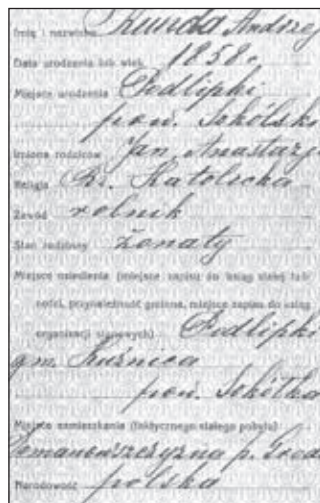 Imię i nazwisko Kunda Andrzej
Data urodzenia lub wiek 1858 r.
Miejsce urodzenia Podlipki
pow. Sokólski
Imiona rodziców Jan, Anastazja
Religja Rz. Katolicka
Zawód rolnik
Stan rodzinny żonaty
Miejsce osiedlenia (miejsce zapisu do ksiąg stałej lud-
ności, przynależność gminna, miejsce zapisu do ksiąg
organizacji stanowych) Podlipki
gm. Kuźnica
pow. Sokółka
Miejsce zamieszkania (faktycznego stałego pobytu)
p. Grod
Narodowość polska